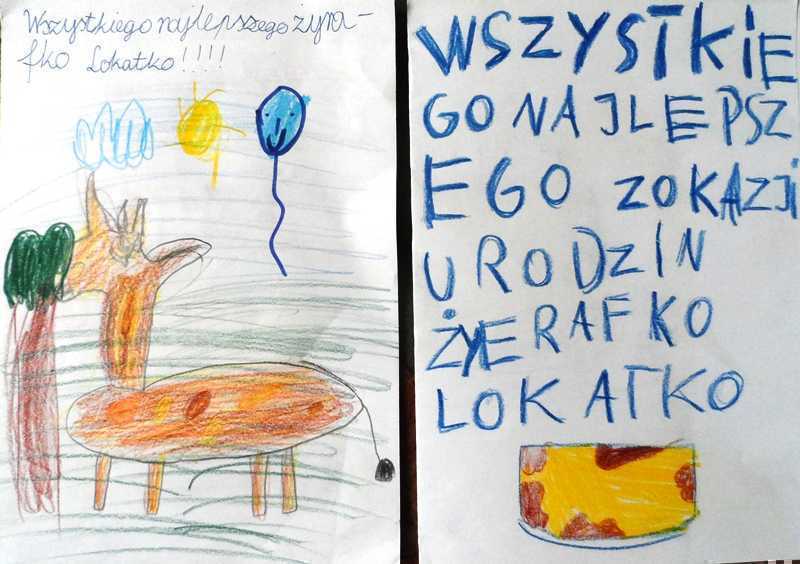 Wszystkiego najlepszego żyra-
fko Lokatko!!!!
WSZYSTKIE
GO NAJLEPSZ
EGO ZOKAZJI
URODZIN
ŻYERAFKO
LOKATKO